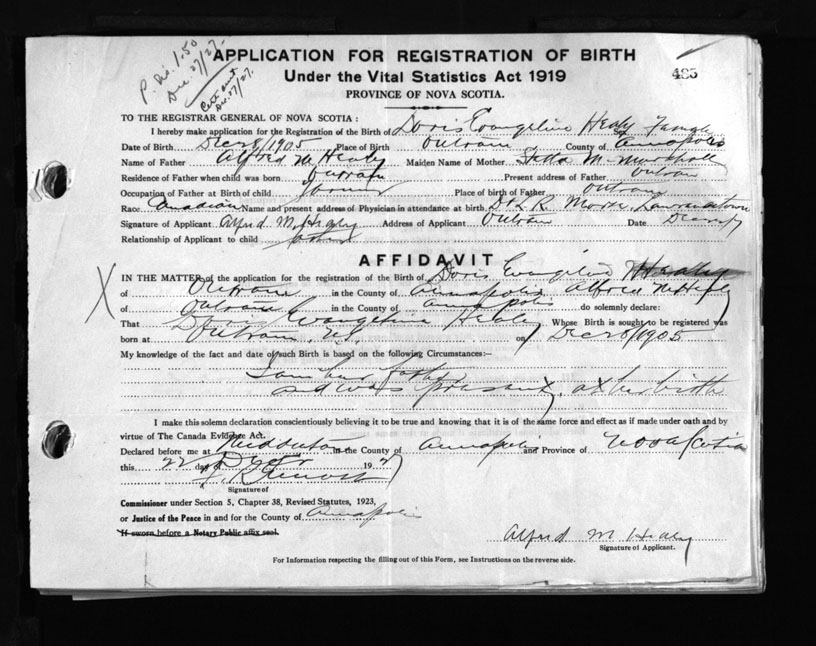 P. Dis. 1.50
Dec. 27/27.
Cert. sent
Dec. 27/27.
APPLICATION FOR REGISTRATION OF BIRTH
Under the Vital Statistics Act 1919
PROVINCE OF NOVA SCOTIA.
485
TO THE REGISTRAR GENERAL OF NOVA SCOTIA :
I hereby make application for the Registration of the Birth of Doris Evangeline Healy Sex Female
Date of Birth Dec 28/1905 Place of Birth Outram County of Annapolis
Name of Father Alfred M. Healy Maiden Name of Mother Stella M. Marshall
Residence of Father when child was born Outram Present address of Father Outram
Occupation of Father at Birth of child farmer Place of birth of Father Outram
Race Canadian Name and present address of Physician in attendance at birth Dr L. R. Morse, Lawrencetown
Signature of Applicant Alfred M. Healy Address of Applicant Outram Date
Relationship of Applicant to child father
AFFIDAVIT
IN THE MATTER of the application for the registration of the Birth of Doris Evangeline Healy
X
of Outram in the County of Annapolis Alfred M Healy
of Outram in the County of Annapolis do solemnly declare:
That Doris Evangeline Healy Whose Birth is sought to be registered was
born at Outram, N.S. on Dec 28/1905
My knowledge of the fact and date of such Birth is based on the following Circumstances:—
I am her father
and was present at her birth
I make this solemn declaration conscientiously believing it to be true and knowing that it is of the same force and effect as if made under oath and by
virtue of The Canada Evidence Act.
Declared before me at Middleton in the County of Annapolis and Province of Nova Scotia
this 22 day Decr 1927
Signature of
Commissioner under Section 5, Chapter 38, Revised Statutes, 1923,
or Justice of the Peace in and for the County of Annapolis
If sworn before a Notary Public affix seal.
Alfred M Healy
Signature of Applicant.
For Information respecting the filling out of this Form, see Instructions on the reverse side.